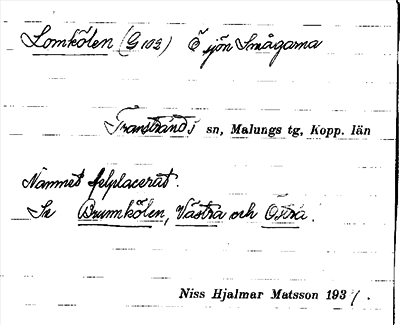 Lomkölen (G 102) Ö sjön Smågarna
Transtrands sn, Malungs tg, Kopp. län
Namnet felplacerat.
Se Brumkölen, Västra och Östra.
Niss Hjalmar Matsson 1937.